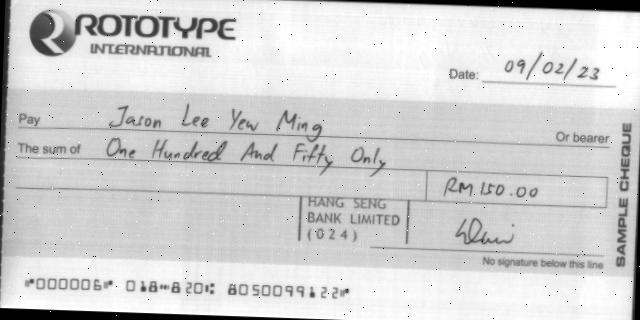 ROTOTYPE
INTERNATIONAL
Date: 09/02/23
Pay Jason Lee Yew Ming
Or bearer
The sum of One Hundred And Fifty Only
RM 150.00
HANG SENG
BANK LIMITED
(024)
No signature below this line
SAMPLE CHEQUE
⑈000006⑈ 018⑉820⑆ 805009912⑉2⑈